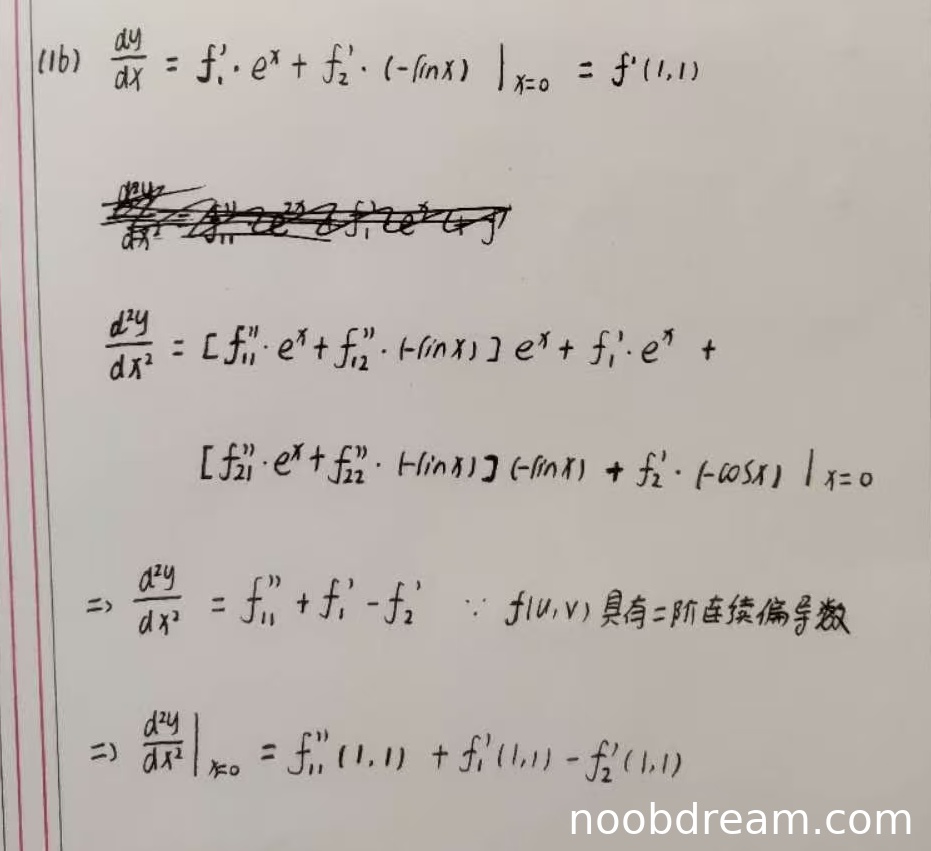 (16) dy/dx = f₁'· eˣ + f₂'· (-sinx) |ₓ₌₀ = f'(1,1)
d²y/dx² = [f₁₁''· eˣ + f₁₂''· (-sinx)] eˣ + f₁'· eˣ +
[f₂₁''· eˣ + f₂₂''· (-sinx)] (-sinx) + f₂'· (-cosx) |ₓ₌₀
=> d²y/dx² = f₁₁'' + f₁' - f₂' ∵ f(u,v) 具有二阶连续偏导数
=> d²y/dx² |ₓ₌₀ = f₁₁''(1,1) + f₁'(1,1) - f₂'(1,1)
noobdream.com